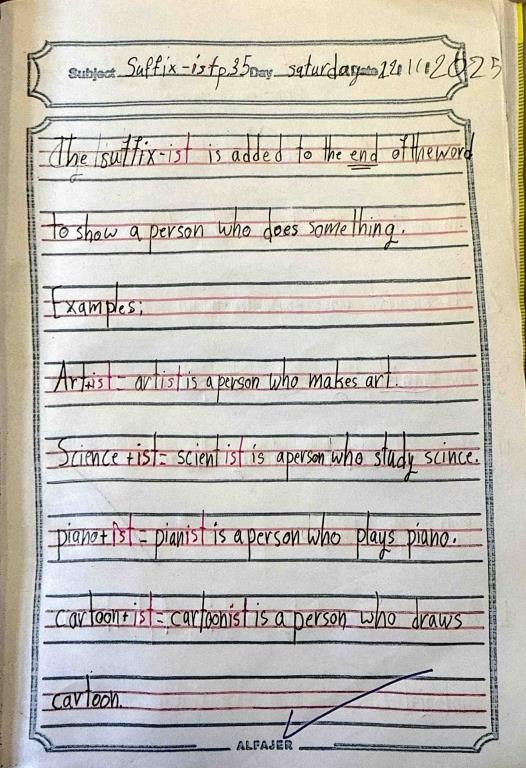 Subject Suffix-ist p35 Day saturday Date 22/11/2025
The suffix-ist is added to the end of the word
to show a person who does something.
Examples;
Art+ist= artist is a person who makes art.
Science +ist= scientist is a person who study scince.
piano+ist = pianist is a person who plays piano.
cartoon+ist= cartoonist is a person who draws
cartoon.
ALFAJER